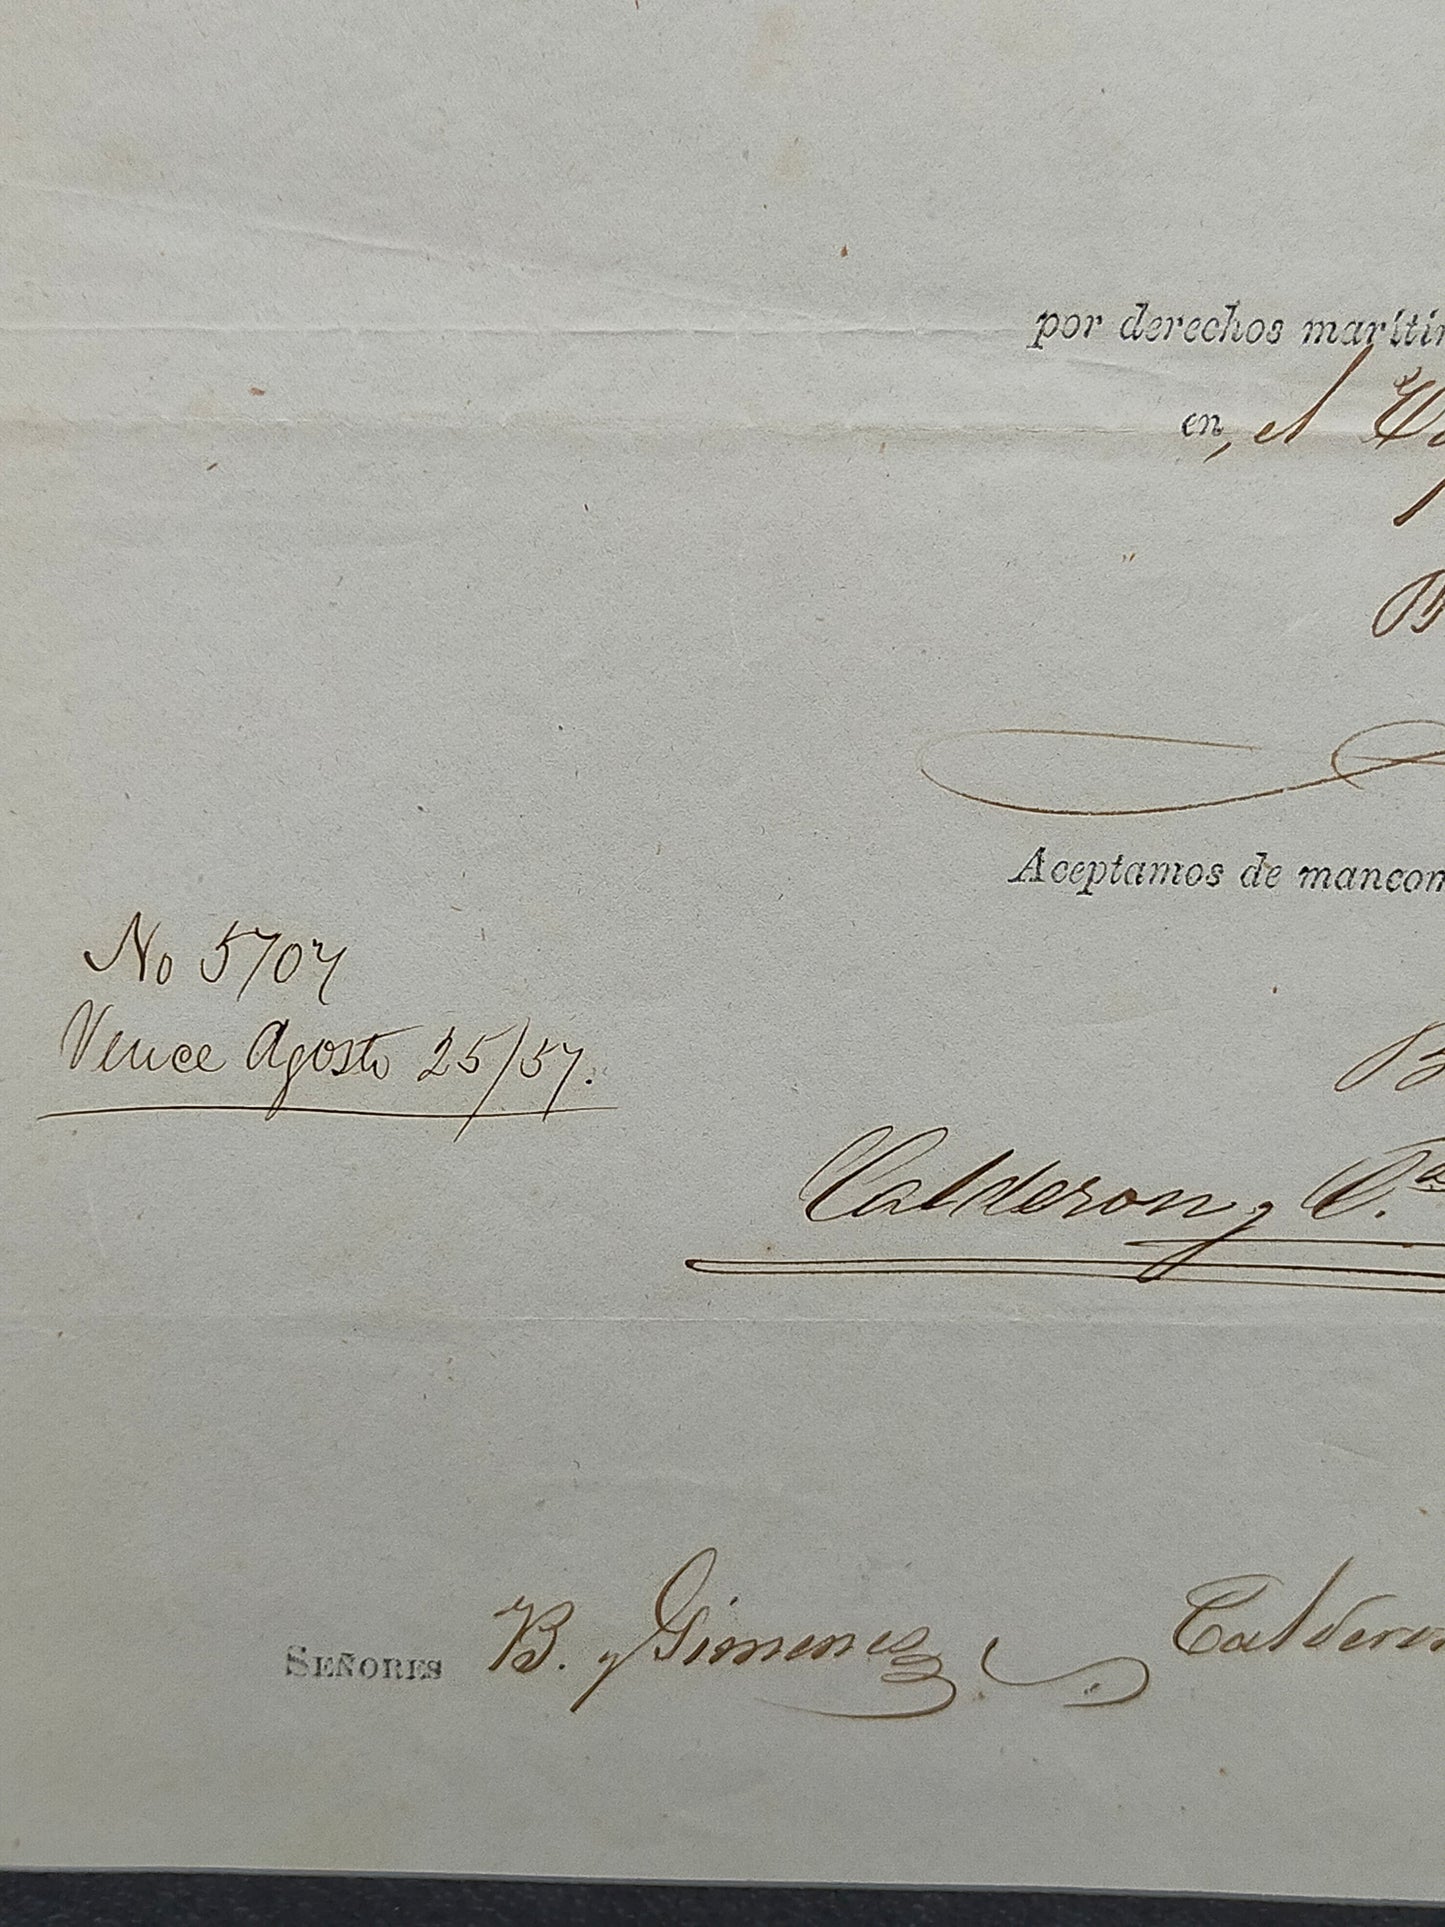 por derechos marítim
en, el
B
Aceptamos de mancom
No 5707
Vence Agosto 25/57.
B
Calderon y C.ª
SEÑORES B. y Gimenes Calderon